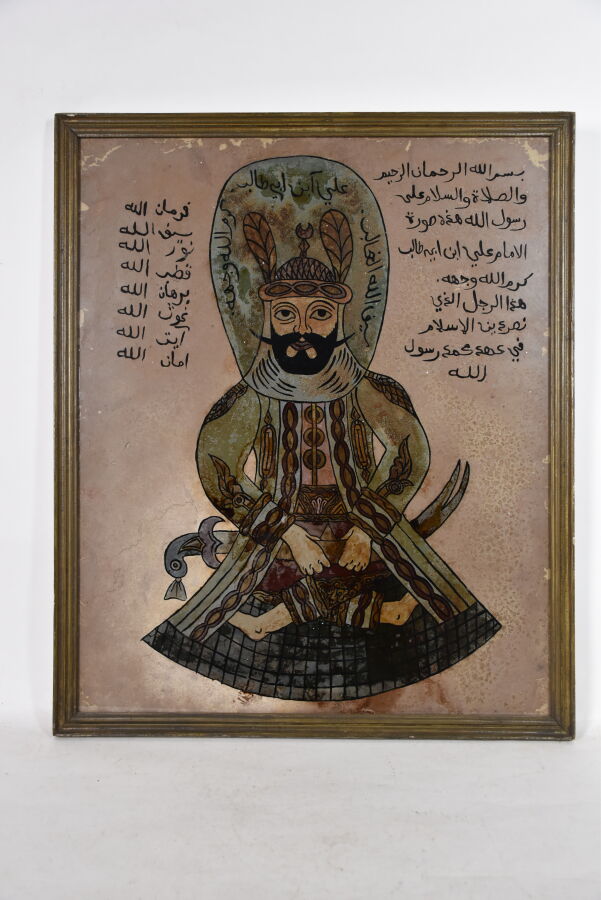 بسم الله الرحمان الرحيم
والصلاة والسلام على
رسول الله هذه صورة
الامام علي ابن ابي طالب
كرم الله وجهه.
هذا الرجل الذي
نصر دين الاسلام
في عهد محمد رسول
الله
علي ابن ابي طالب
كرم الله وجهه
سيف الله
فرمان الله
سيف الله
نور الله
قطر الله
برهان الله
غوث الله
اية الله
امان الله